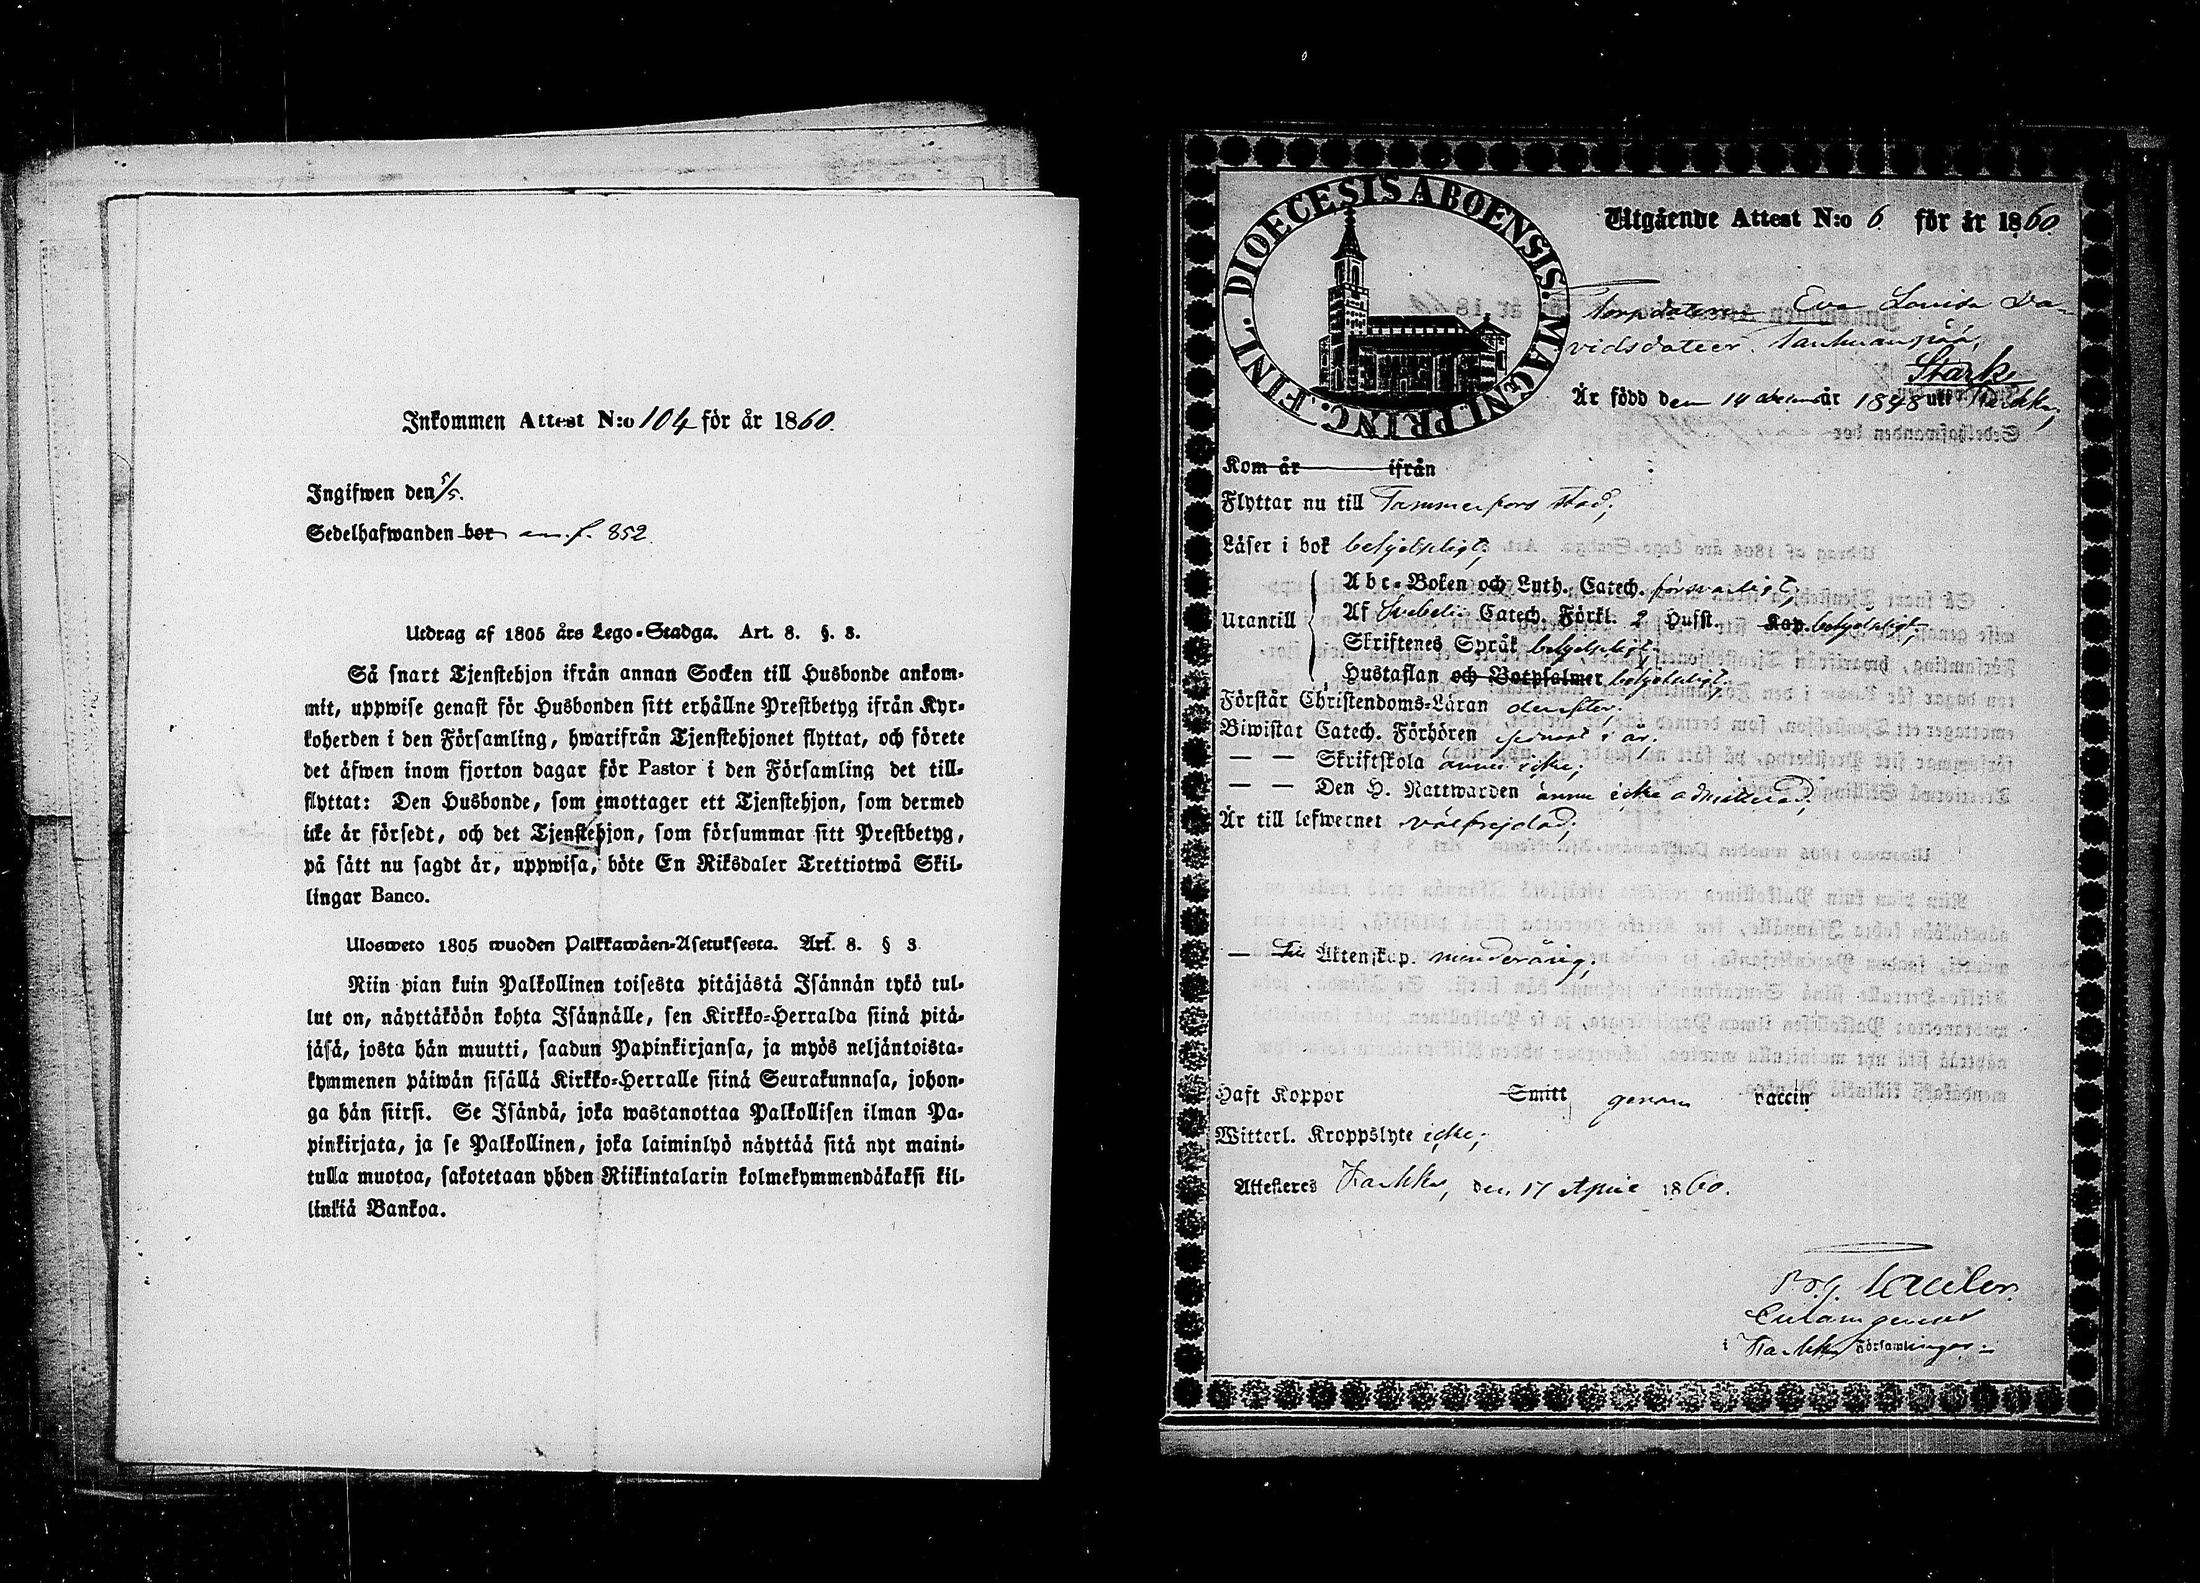 Inkommen Attest N:o 104 för år 1860.
Ingifwen den 5/5.
Sedelhafwanden bor an. f. 852.
Utdrag af 1805 års Lego-Stadga. Art. 8. §. 3.
Så snart Tjenstehjon ifrån annan Socken till Husbonde ankom-
mit, uppwise genast för Husbonden sitt erhållne Prestbetyg ifrån Kyr-
koherden i den Församling, hwarifrån Tjenstehjonet flyttat, och förete
det äfwen inom fjorton dagar för Pastor i den Församling det till-
flyttat: Den Husbonde, som emottager ett Tjenstehjon, som dermed
icke är försedt, och det Tjenstehjon, som försummar sitt Prestbetyg,
på sätt nu sagdt är, uppwisa, böte En Riksdaler Trettiotwå Skil-
lingar Banco.
Ulosweto 1805 wuoden Palkkawäen-Asetuksesta. Art. 8. § 3
Niin pian kuin Palkollinen toisesta pitäjästä Isännän tykö tul-
lut on, näyttäköön kohta Isännälle, sen Kirkko-Herralda siinä pitä-
jäsä, josta hän muutti, saadun Papinkirjansa, ja myös neljäntoista-
kymmenen päiwän sisällä Kirkko-Herralle siinä Seurakunnasa, johon-
ga hän siirsi. Se Isändä, joka wastanottaa Palkollisen ilman Pa-
pinkirjata, ja se Palkollinen, joka laiminlyö näyttää sitä nyt maini-
tulla muotoa, sakotetaan yhden Riikintalarin kolmekymmendäkaksi kil-
linkiä Bankoa.
DIOECESIS ABOENSIS. MAGNI. PRINC. FINL.
Utgående Attest N:o 6 för år 1860.
Torpdottern Eva Lovisa Da-
vidsdotter
Starke
Är född den 14 år 1848 uti Karkku;
Kom år ifrån
Flyttar nu till Tammerfors stad;
Läser i bok behjelpligt;
Utantill
Abc-Boken och Luth. Catech. försvarligt;
Af Svebelii Catech. Förkl. 2 Husst. Kap. behjelpligt;
Skriftenes Språk behjelpligt;
Hustaflan och Botpsalmer behjelpligt;
Förstår Christendoms-Läran derefter;
Biwistat Catech. Förhören senast i år;
— — Skriftskola ännu icke;
— — Den H. Nattwarden ännu icke admitterad;
Är till lefwernet välfrejdad;
— Till Äktenskap. minderårig;
Haft Koppor Smitt genom vaccin
Witterl. Kroppslyte icke;
Attesteres Karkku, den 17 April 1860.
i Karkku Församlingar.